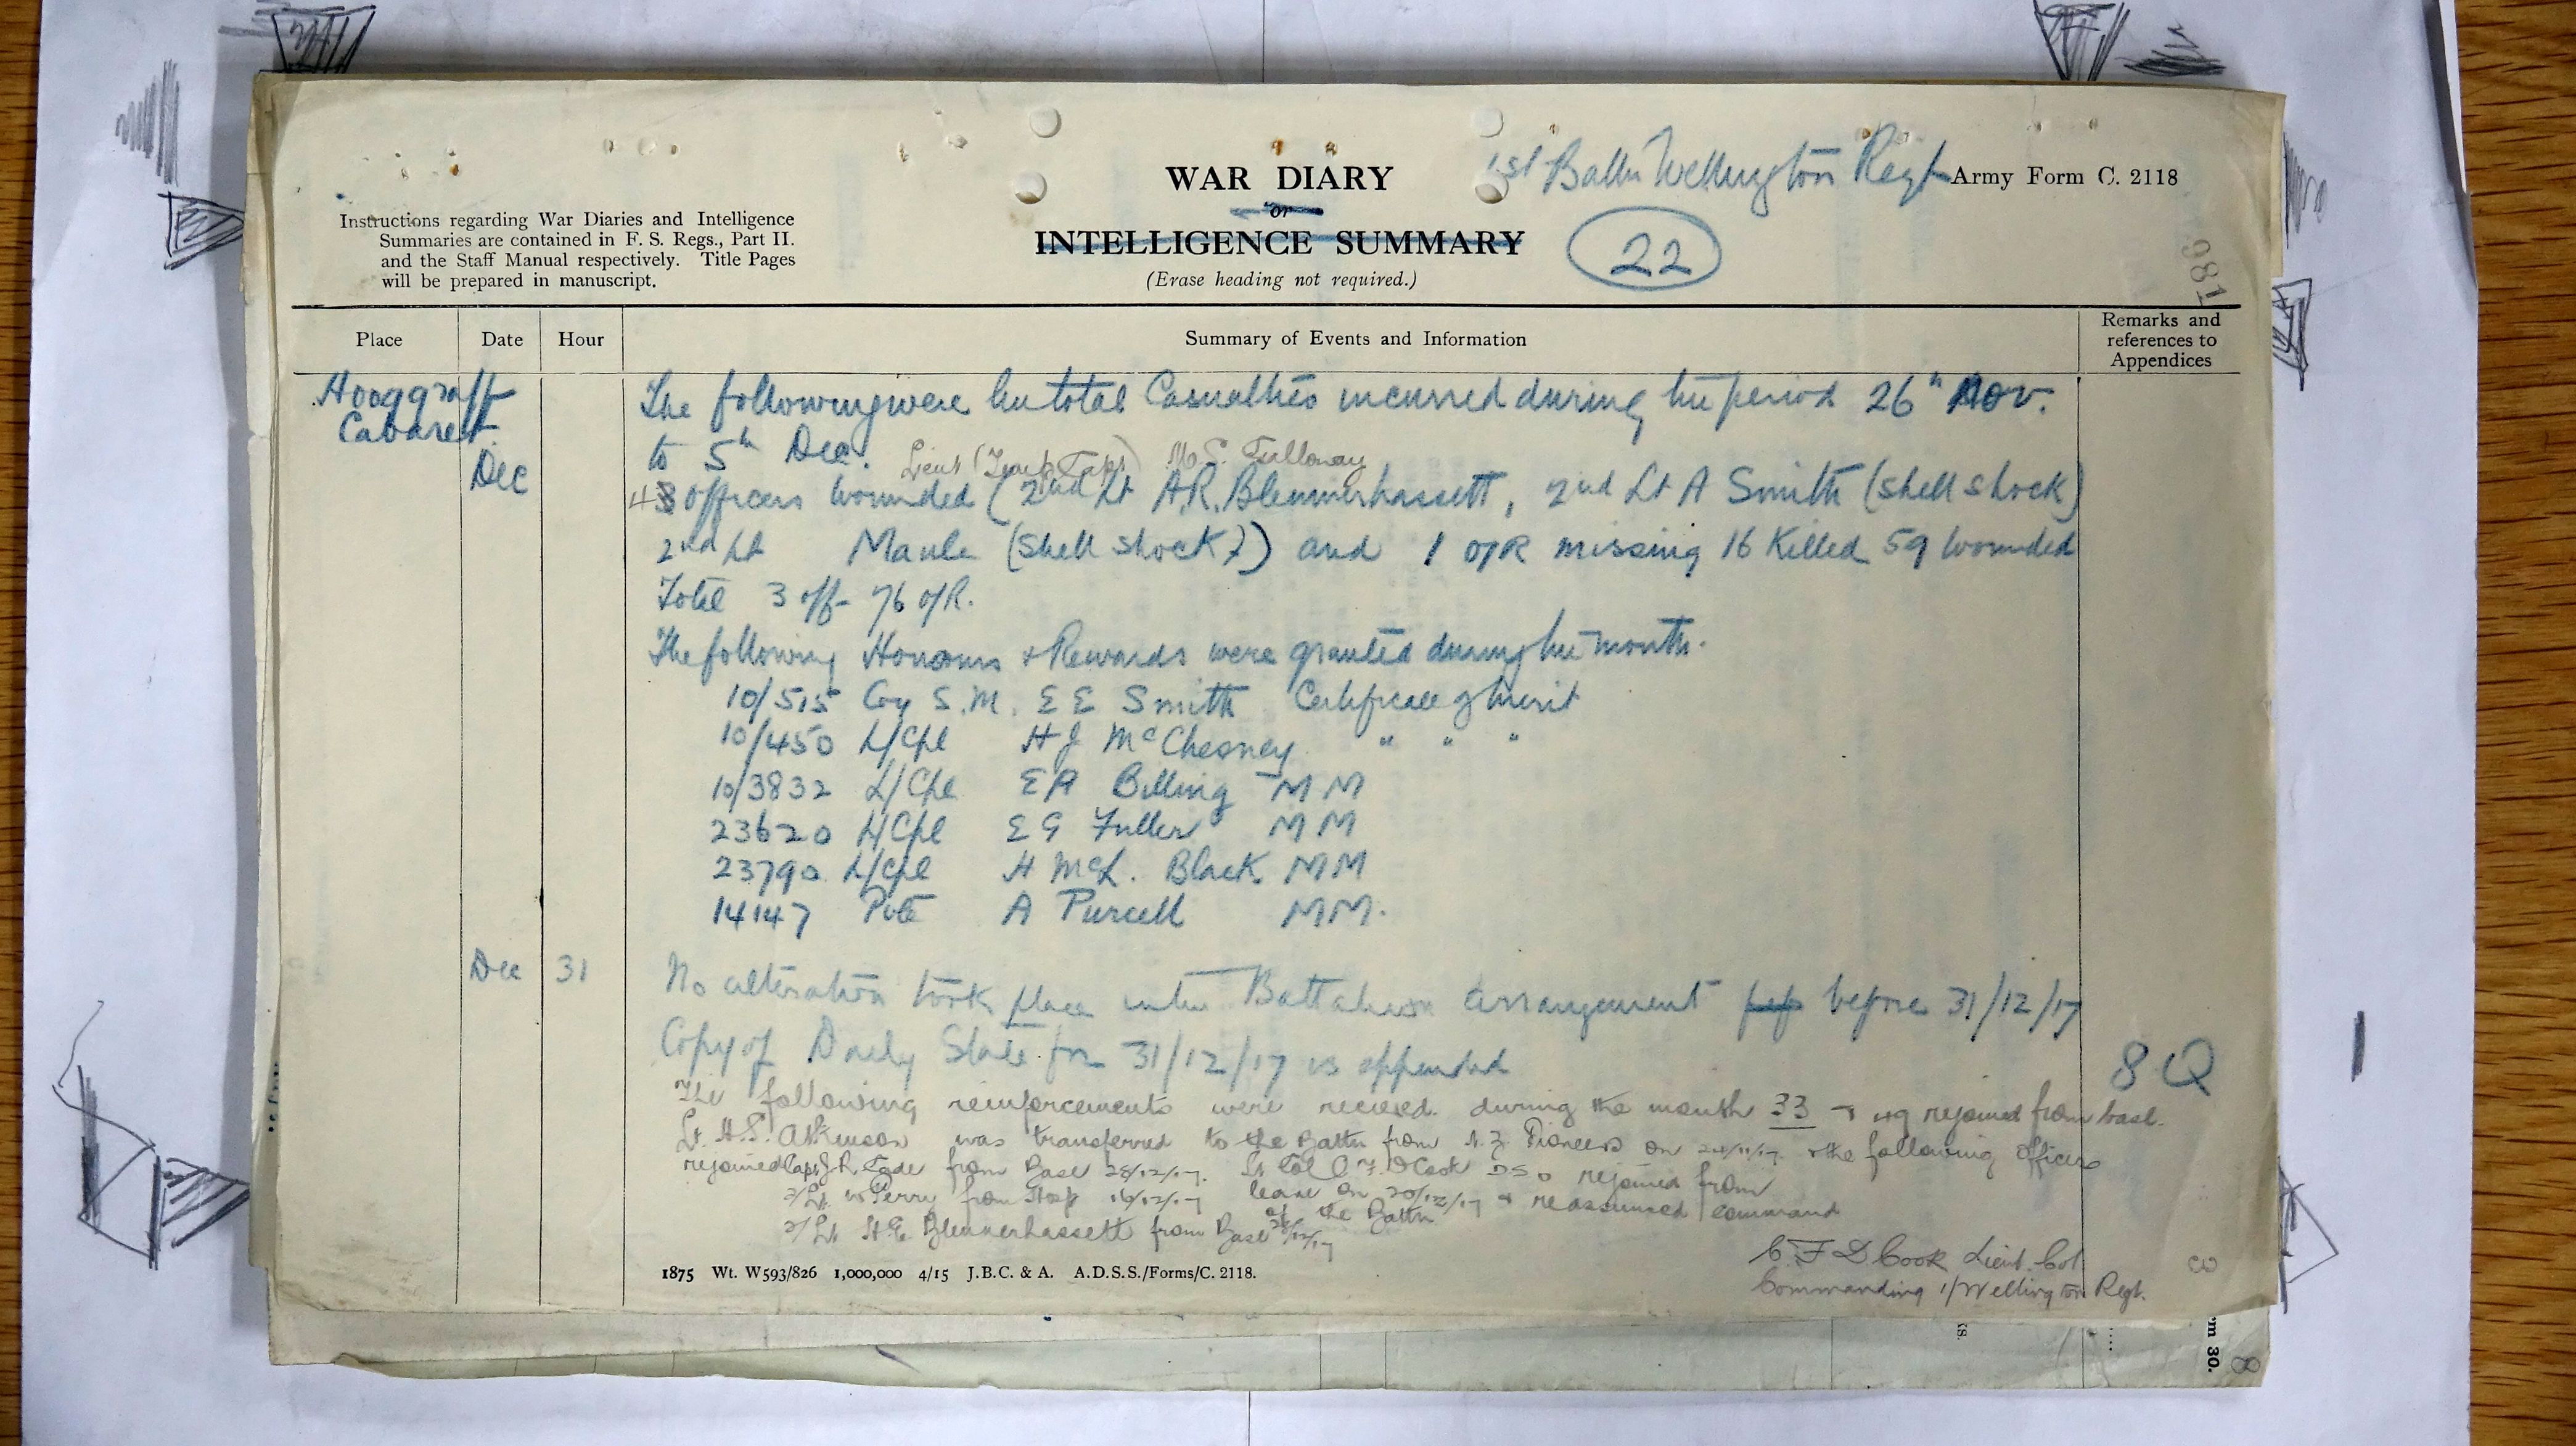 1st Battn Wellington Regt Army Form C. 2118
WAR DIARY
or
INTELLIGENCE SUMMARY
(Erase heading not required.)
22
180
Instructions regarding War Diaries and Intelligence
Summaries are contained in F. S. Regs., Part II.
and the Staff Manual respectively. Title Pages
will be prepared in manuscript.
Place Date Hour Summary of Events and Information Remarks and references to Appendices
Hooggraff
Cabaret.
Dec
The following were the total Casualties incurred during the period 26th Nov.
to 5th Dec.
Lieut (Temp Capt)
4 3 Officers wounded (2nd Lt A.R. Blennerhassett, 2nd Lt A Smith (shell shock)
2nd Lt Maule (shell shock)) and 1 O/R missing 16 Killed 59 wounded
Total 3 off- 76 O/R.
The following Honours & Rewards were granted during the month.
10/515 Coy S.M. E E Smith Certificate of Merit
10/450 L/Cpl H J McChesney " " "
10/3832 L/Cpl E A Billing M M
23620 L/Cpl E G Fuller M M
23790 L/Cpl H McL. Black M M
14147 Pvte A Purcell M M.
Dec 31 No alteration took place in the Battalion arrangement before 31/12/17
Copy of Daily State for 31/12/17 is appended
8Q
The following reinforcements were recieved during the month 33 & 49 rejoined from base.
Lt. H.S. Atkinson was transferred to the Battn from N.Z. Pioneers on & the following officers
rejoined Capt J.R. Cade from Base 28/12/17. Lt Col C F D Cook DSO rejoined from
2/Lt W Perry from Hosp 16/12/17 leave on 20/12/17 & reassumed command
of the Battn
2/Lt Blennerhassett from Base
C F D Cook Lieut. Col
Commanding 1/Wellington Regt.
1875 Wt. W593/826 1,000,000 4/15 J.B.C. & A. A.D.S.S./Forms/C. 2118.
3
m 30.
8